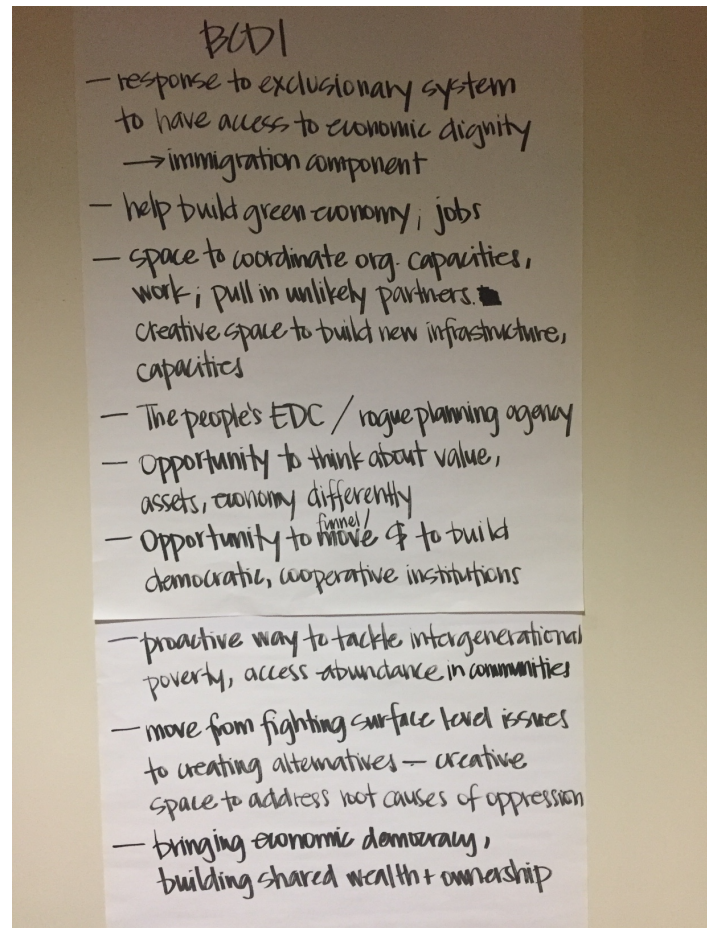 BCDI
— response to exclusionary system
to have access to economic dignity
→ immigration component
— help build green economy; jobs
— space to coordinate org. capacities,
work; pull in unlikely partners.
creative space to build new infrastructure,
capacities
— The people's EDC / rogue planning agency
— Opportunity to think about value,
assets, economy differently
— Opportunity to funnel/move $ to build
democratic, cooperative institutions
— proactive way to tackle intergenerational
poverty, access abundance in communities
— move from fighting surface level issues
to creating alternatives — creative
space to address root causes of oppression
— bringing economic democracy,
building shared wealth + ownership